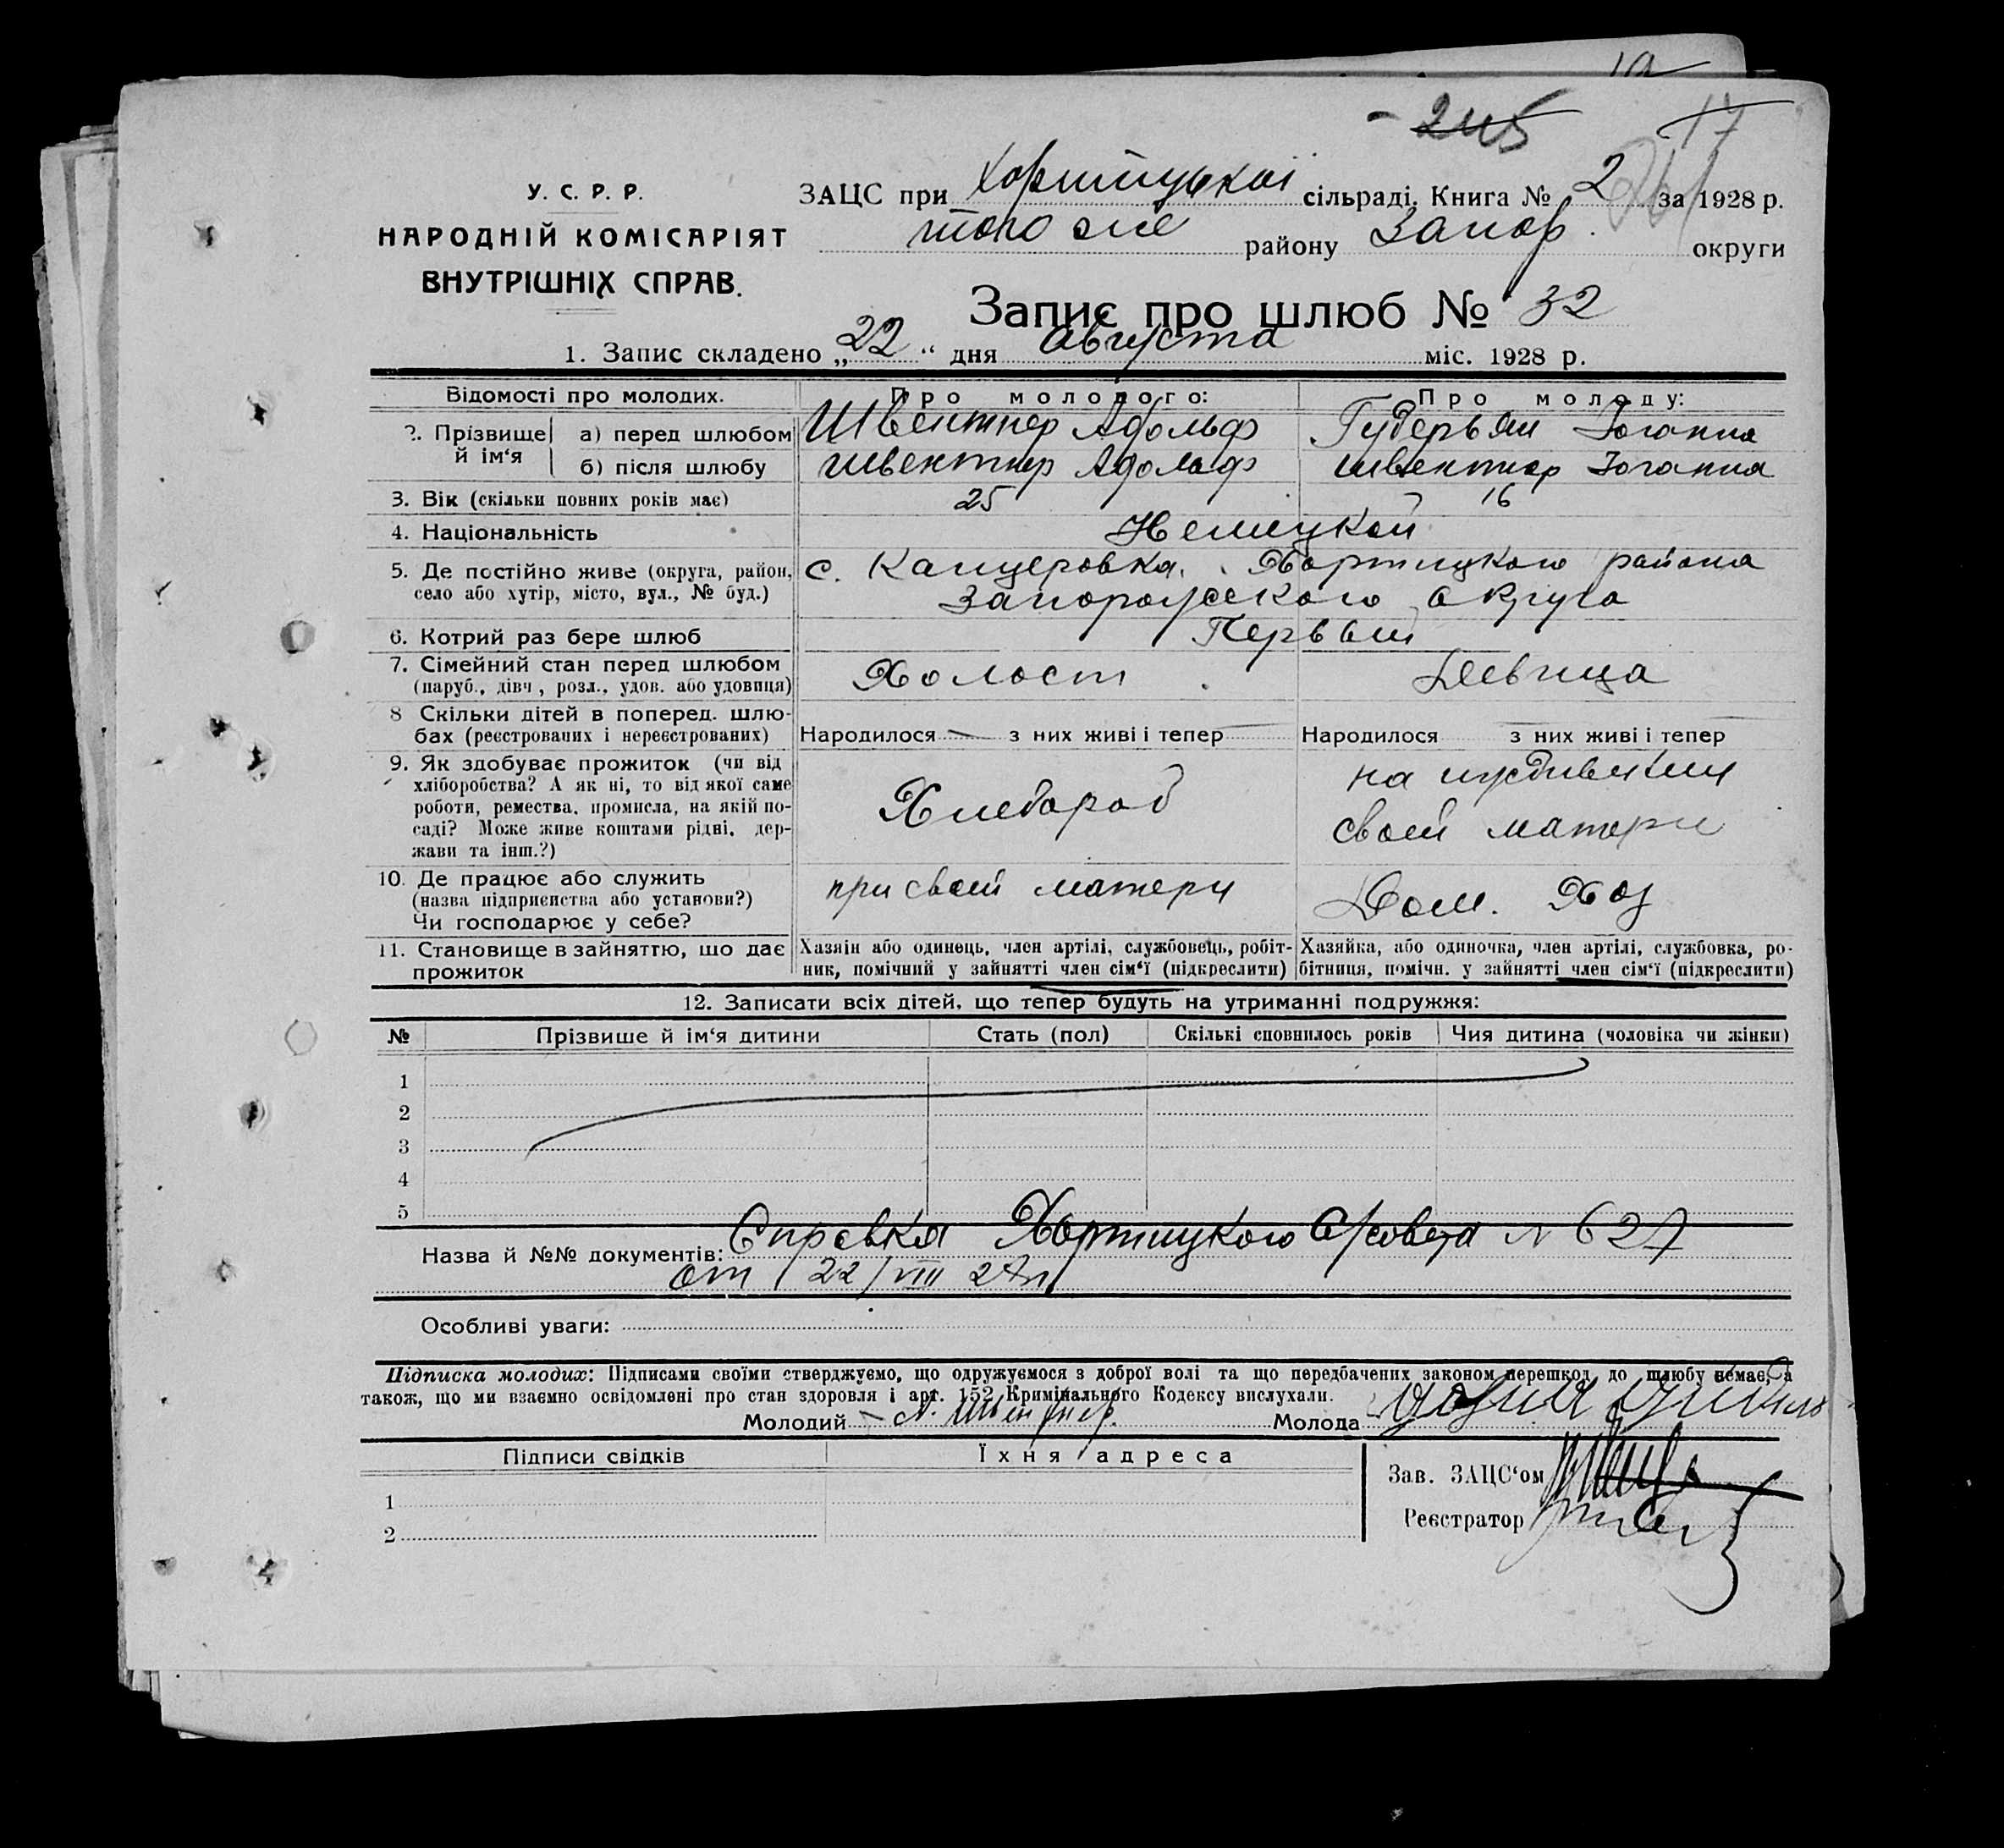 245
17
У. С. Р. Р.
НАРОДНІЙ КОМІСАРІЯТ
ВНУТРІШНІХ СПРАВ.
ЗАЦС при Хортицькой сільраді. Книга № 2 за 1928 р.
того же району Запор. округи
Запис про шлюб № 32
1. Запис складено „22“ дня Августа міс. 1928 р.
Відомості про молодих. Про молодого: Про молоду:
2. Прізвище й ім‘я а) перед шлюбом Швентнер Адольф Гудерьян Іоганна
б) після шлюбу Швентнер Адольф Швентнер Іоганна
3. Вік (скільки повних років має) 25 16
4. Національність Немецкой
5. Де постійно живе (округа, район, село або хутір, місто, вул., № буд.) с. Канцеровка. Хортицкого района
Запорожского округа
6. Котрий раз бере шлюб Первый
7. Сімейний стан перед шлюбом (паруб., дівч, розл., удов. або удовиця) Холост Девица
8 Скільки дітей в поперед. шлюбах (реєстрованих і нереєстрованих) Народилося — з них живі і тепер Народилося з них живі і тепер
9. Як здобуває прожиток (чи від хліборобства? А як ні, то від якої саме роботи, ремества, промисла, на якій посаді? Може живе коштами рідні, держави та інш.?) Хлебороб на иждивении
своей матери
10. Де працює або служить (назва підприємства або установи?) Чи господарює у себе? при своей матери Дом. Хоз
11. Становище в зайняттю, що дає прожиток Хазяїн або одинець, член артілі, службовець, робітник, помічний у зайнятті член сім‘ї (підкреслити) Хазяйка, або одиночка, член артілі, службовка, робітниця, помічн. у зайнятті член сім‘ї (підкреслити)
12. Записати всіх дітей, що тепер будуть на утриманні подружжя:
№ Прізвище й ім‘я дитини Стать (пол) Скількі сповнилось років Чия дитина (чоловіка чи жінки)
1
2
3
4
5
Назва й №№ документів: Справка Хортицкого С/совета № 627
от 22/VIII 28г
Особливі уваги:
Підписка молодих: Підписами своїми стверджуємо, що одружуємося з доброї волі та що передбачених законом перешкод до шлюбу немає, а
також, що ми взаємно освідомлені про стан здоровля і арт. 152 Кримінального Кодексу вислухали.
Молодий А. Швентнер. Молода
Підписи свідків Їхня адреса
Зав. ЗАЦС‘ом
1
Реєстратор
2